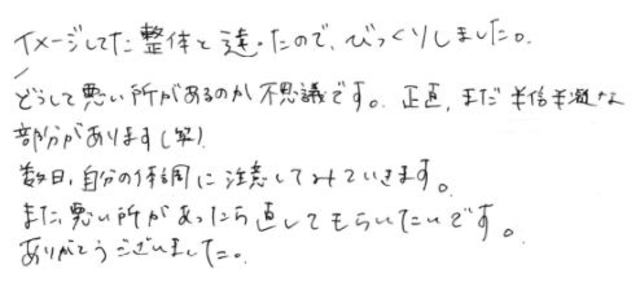 イメージしてた整体と違ったので、びっくりしました。
どうして悪い所があるのか不思議です。正直、まだ半信半疑な
部分があります(笑)
数日、自分の体調に注意してみていきます。
また、悪い所があったら直してもらいたいです。
ありがとうございました。